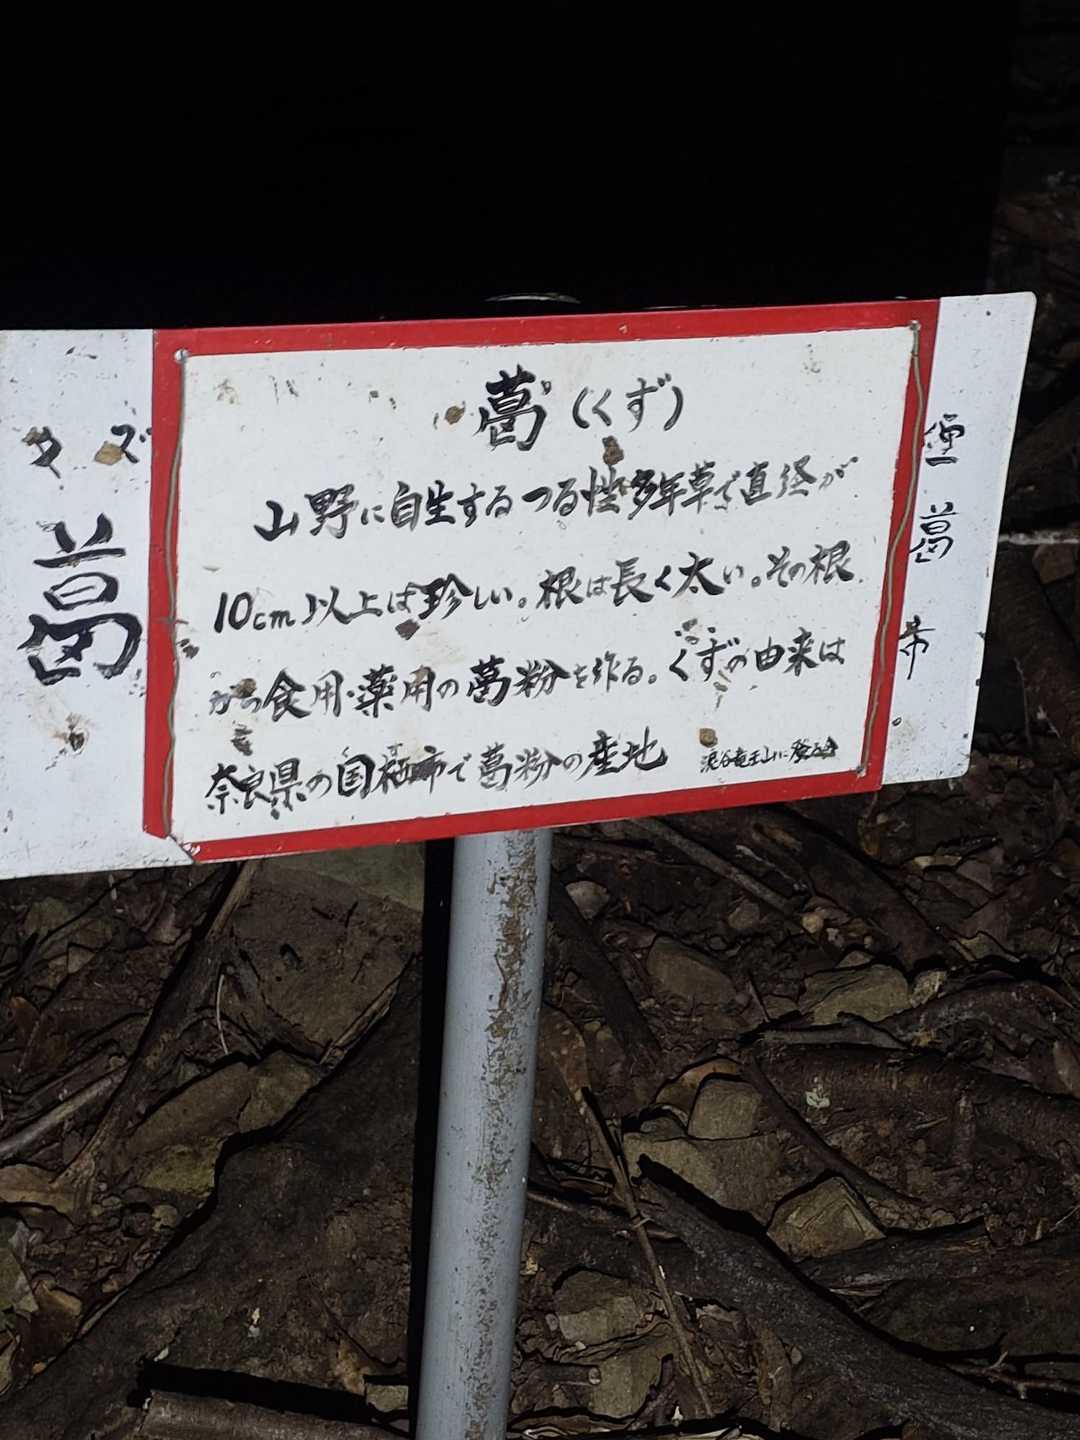 葛(くず)
山野に自生するつる性多年草で直径が
10cm以上は珍しい。根は長く太い。その根
から食用・薬用の葛粉を作る。くずの由来は
奈良県の国栖市で葛粉の産地
滝谷竜王山に登る会
クズ
葛
葛